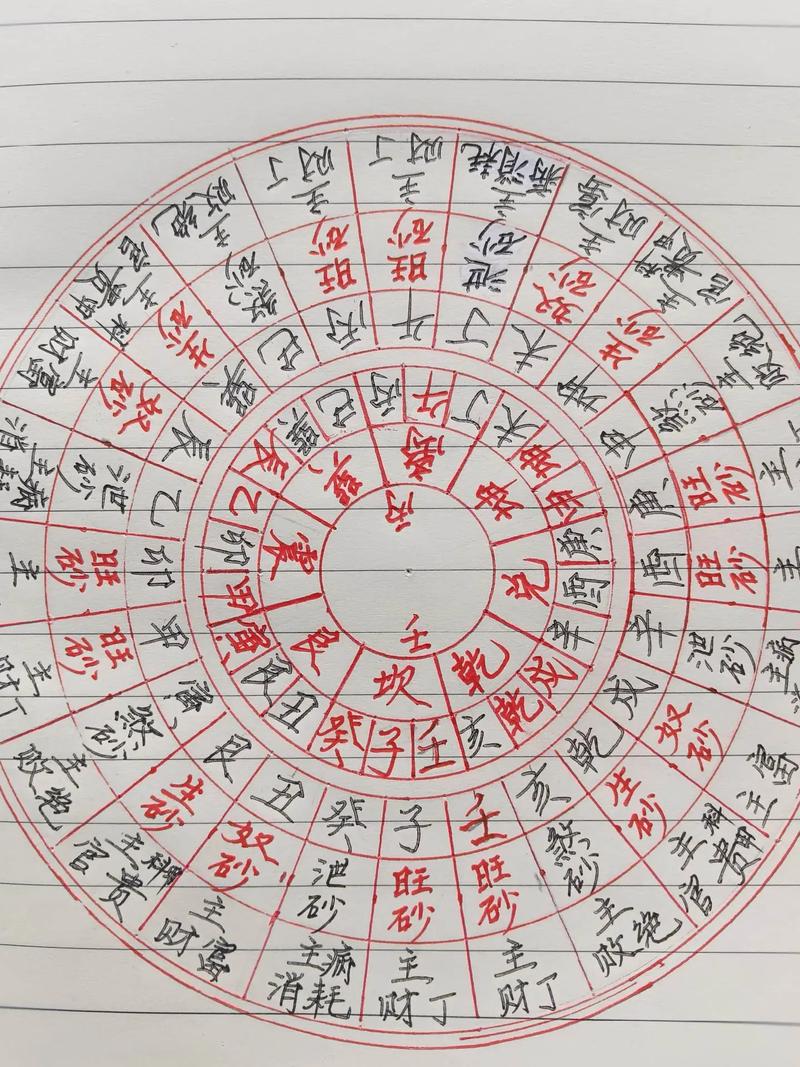 丙
壬
离
坤
兑
乾
坎
艮
震
巽
午
丁
未
坤
庚
酉
辛
戌
乾
亥
壬
子
癸
丑
艮
寅
甲
卯
乙
辰
巽
巳
丙
午
丁
未
坤
申
庚
酉
辛
戌
乾
亥
壬
子
癸
丑
艮
寅
甲
卯
乙
辰
巽
巳
丙
旺砂
泄砂
奴砂
生砂
煞砂
旺砂
旺砂
泄砂
奴砂
生砂
煞砂
旺砂
旺砂
泄砂
奴砂
生砂
煞砂
旺砂
旺砂
泄砂
奴砂
生砂
煞砂
旺砂
主
财丁
主病
消耗
主
财富
主科甲
官贵
主
败绝
主
主
主病
主富
主科甲
官贵
主
败绝
主
财丁
主
财丁
主病
消耗
主
财富
主科甲
官贵
主
败绝
主
财丁
主
主病
消耗
主
财富
主科甲
官贵
主
败绝
主
财丁